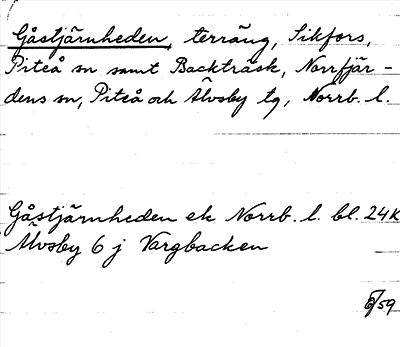 Gåstjärnheden, terräng, Sikfors,
Piteå sn samt Backträsk, Norrfjär-
dens sn, Piteå och Älvsby tg, Norrb. l.
Gåstjärnheden ek Norrb. l. bl. 24K
Älvsby 6 j Vargbacken
6/59